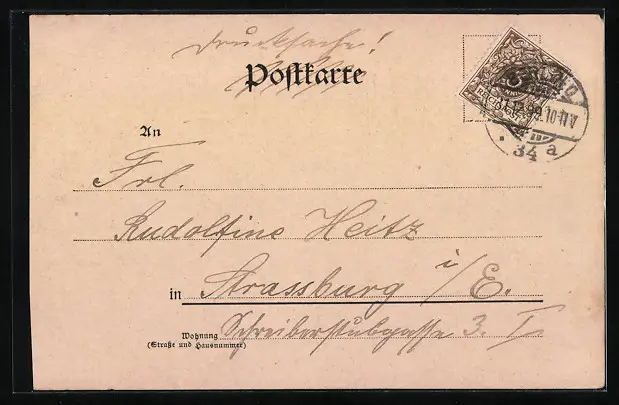 Drucksache!
Postkarte
An
Frl.
Rudolfine Heitz
in Strassburg i/E.
Wohnung
(Straße und Hausnummer)
Schreiberstubgasse 3. I
3
REICHSPOST
10-11V
34 a